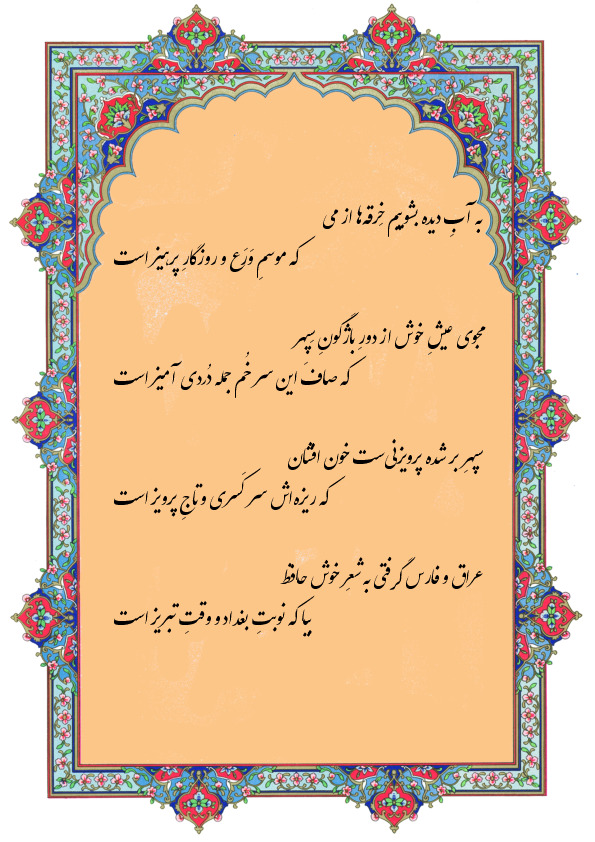 به آبِ دیده بشوییم خِرقه‌ها از می
که موسمِ وَرَع و روزگارِ پرهیز است
مجوی عیشِ خوش از دورِ باژگونِ سِپِهر
که صافِ این سرِ خُم جمله دُردی آمیز است
سپهرِ بر شده پرویزنی‌ست خون افشان
که ریزه‌اش سر کَسری و تاجِ پرویز است
عراق و فارس گرفتی به شعرِ خوش حافظ
بیا که نوبتِ بغداد و وقتِ تبریز است